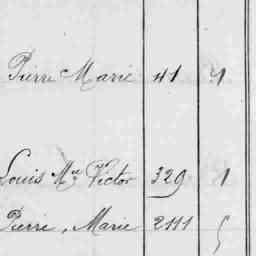 Pierre Marie 41
Louis Mie Victor 329 1
Pierre, Marie 2111 5